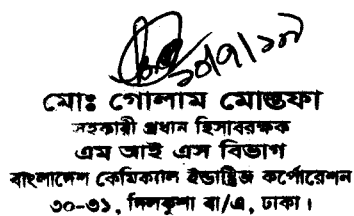 ১০/৭/১৮
মোঃ গোলাম মোস্তফা
সহকারী প্রধান হিসাবরক্ষক
এম আই এস বিভাগ
বাংলাদেশ কেমিক্যাল ইন্ডাস্ট্রিজ কর্পোরেশন
৩০-৩১, দিলকুশা বা/এ, ঢাকা।